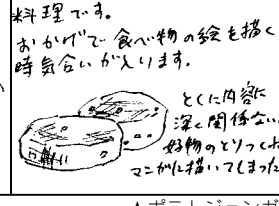 料理です。
おかげで食べ物の絵を描く
時気合いが入ります。
とくに内容に
深く関係ない
好物のとりつくね
マンガに描いてしまった